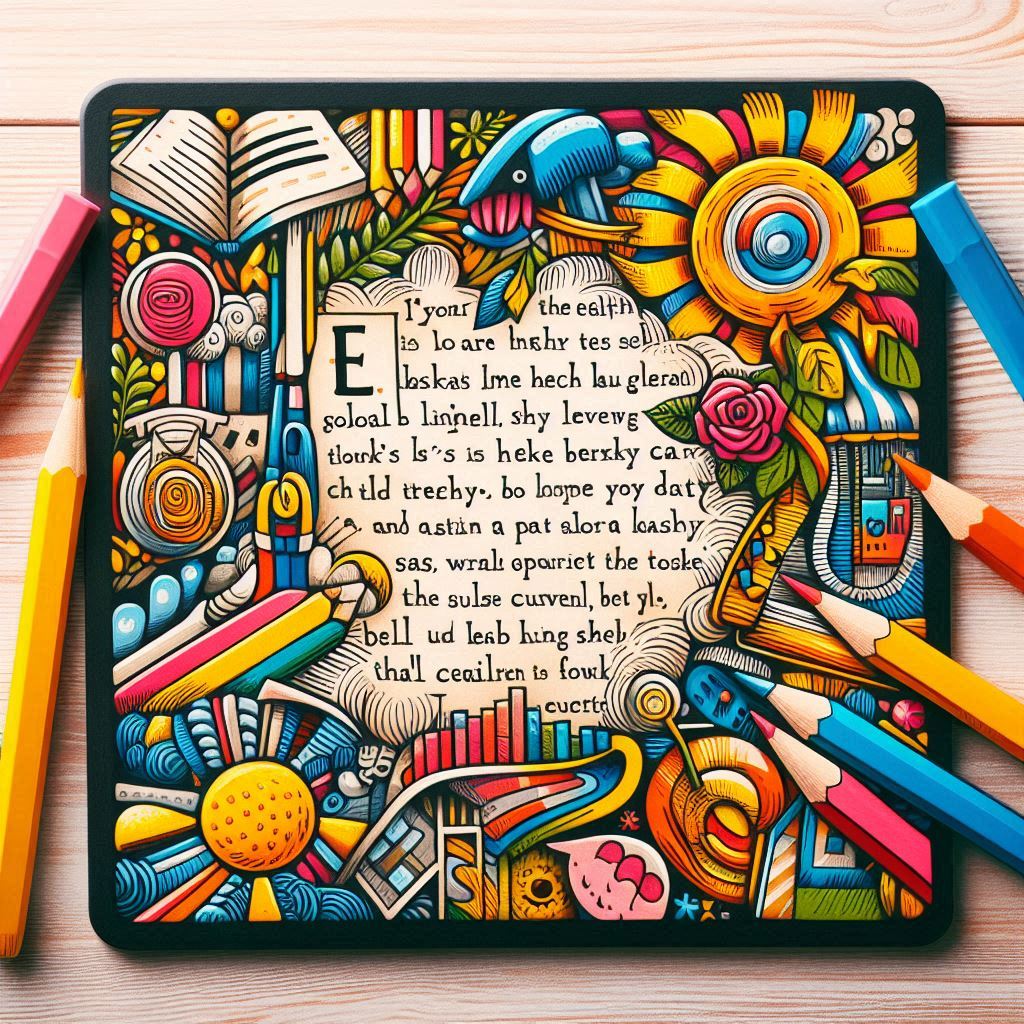 I'your the ealth
E is lo are Inshr tes sell
lbskas lme hech lau glerad
soloal b linjell, shy levewe
tlork's ls's is heke berxky can
ch ild trechy., bo lospe yoy daty
and astin a pat alora loashy
sas, wrals oparict the toske
the sulse curvenl, bet yl.,
bell ud leab hing sheb
thall ceailren is fowk